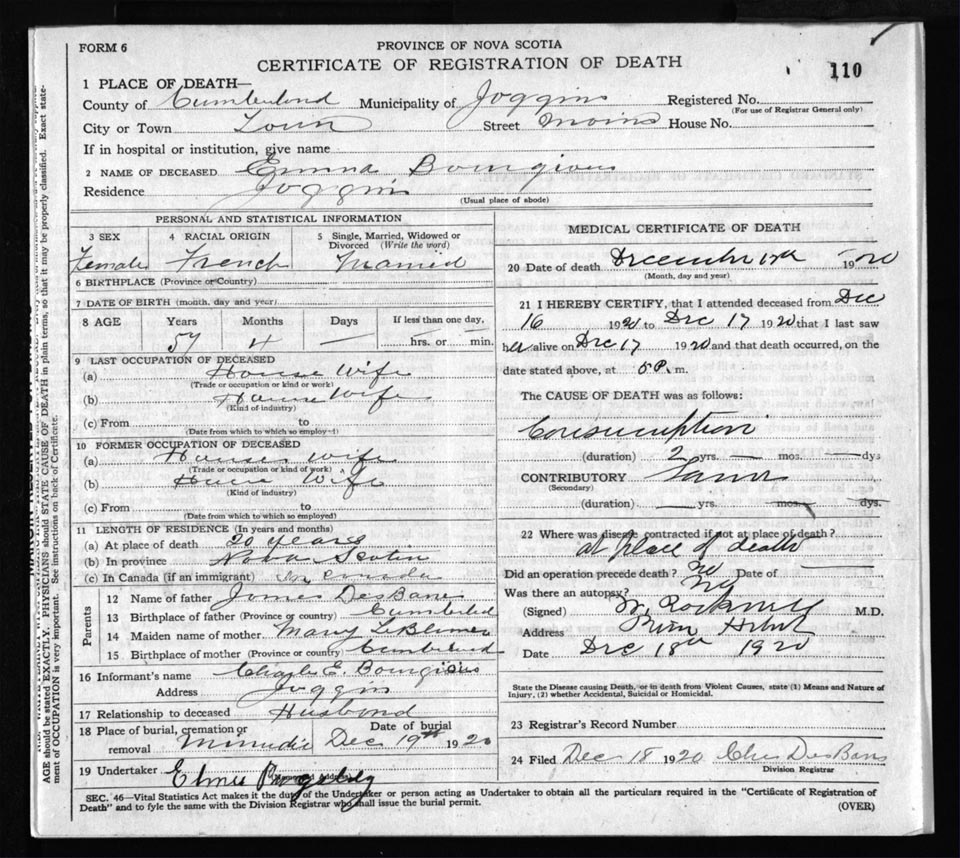 FORM 6
PROVINCE OF NOVA SCOTIA
CERTIFICATE OF REGISTRATION OF DEATH
110
1 PLACE OF DEATH—
County of Cumberland Municipality of Joggins Registered No.
(For use of Registrar General only)
City or Town Town Street Mains House No.
If in hospital or institution, give name
2 NAME OF DECEASED Emma Bourgious
Residence Joggins
(Usual place of abode)
PERSONAL AND STATISTICAL INFORMATION
3 SEX 4 RACIAL ORIGIN 5 Single, Married, Widowed or Divorced (Write the word)
Female French Married
6 BIRTHPLACE (Province or Country)
7 DATE OF BIRTH (month, day and year)
8 AGE Years Months Days If less than one day,
57 4 — hrs. or min.
9 LAST OCCUPATION OF DECEASED
(a) House Wife
(Trade or occupation or kind or work)
(b) House Wife
(Kind of industry)
(c) From to
(Date from which to which so employ—)
10 FORMER OCCUPATION OF DECEASED
(a) House Wife
(Trade or occupation or kind of work)
(b) House Wife
(Kind of industry)
(c) From to
(Date from which to which so employed)
11 LENGTH OF RESIDENCE (In years and months)
(a) At place of death 20 years
(b) In province Nova Scotia
(c) In Canada (if an immigrant) In Canada
Parents
12 Name of father James DesBarres
13 Birthplace of father (Province or country) Cumberland
14 Maiden name of mother Mary
15 Birthplace of mother (Province or country) Cumberland
16 Informant's name Charle E. Bourgious
Address Joggins
17 Relationship to deceased Husband
18 Place of burial, cremation or removal Minudie Date of burial Dec 19th 1920
19 Undertaker
MEDICAL CERTIFICATE OF DEATH
20 Date of death December 17th 1920
(Month, day and year)
21 I HEREBY CERTIFY, that I attended deceased from Dec
16 1920 to Dec 17 1920 that I last saw
her alive on Dec 17 1920 and that death occurred, on the
date stated above, at 5 P. m.
The CAUSE OF DEATH was as follows:
Consumption
(duration) 2 yrs. — mos. — dys
CONTRIBUTORY
(Secondary)
(duration) — yrs. — mos. — dys.
22 Where was disease contracted if not at place of death?
at place of death
Did an operation precede death? no Date of
Was there an autopsy? No
(Signed) W. Rockwell M.D.
Address River Hebert
Date Dec 18th 1920
State the Disease causing Death, or in death from Violent Causes, state (1) Means and Nature of
Injury, (2) whether Accidental, Suicidal or Homicidal.
23 Registrar's Record Number
24 Filed Dec 18 1920 Chs DesBarres
Division Registrar
SEC. 46—Vital Statistics Act makes it the duty of the Undertaker or person acting as Undertaker to obtain all the particulars required in the "Certificate of Registration of
Death" and to fyle the same with the Division Registrar who shall issue the burial permit.
(OVER)
AGE should be stated EXACTLY. PHYSICIANS should STATE CAUSE OF DEATH in plain terms, so that it may be properly classified. Exact state-
ment of OCCUPATION is very important. See instructions on back of Certificate.